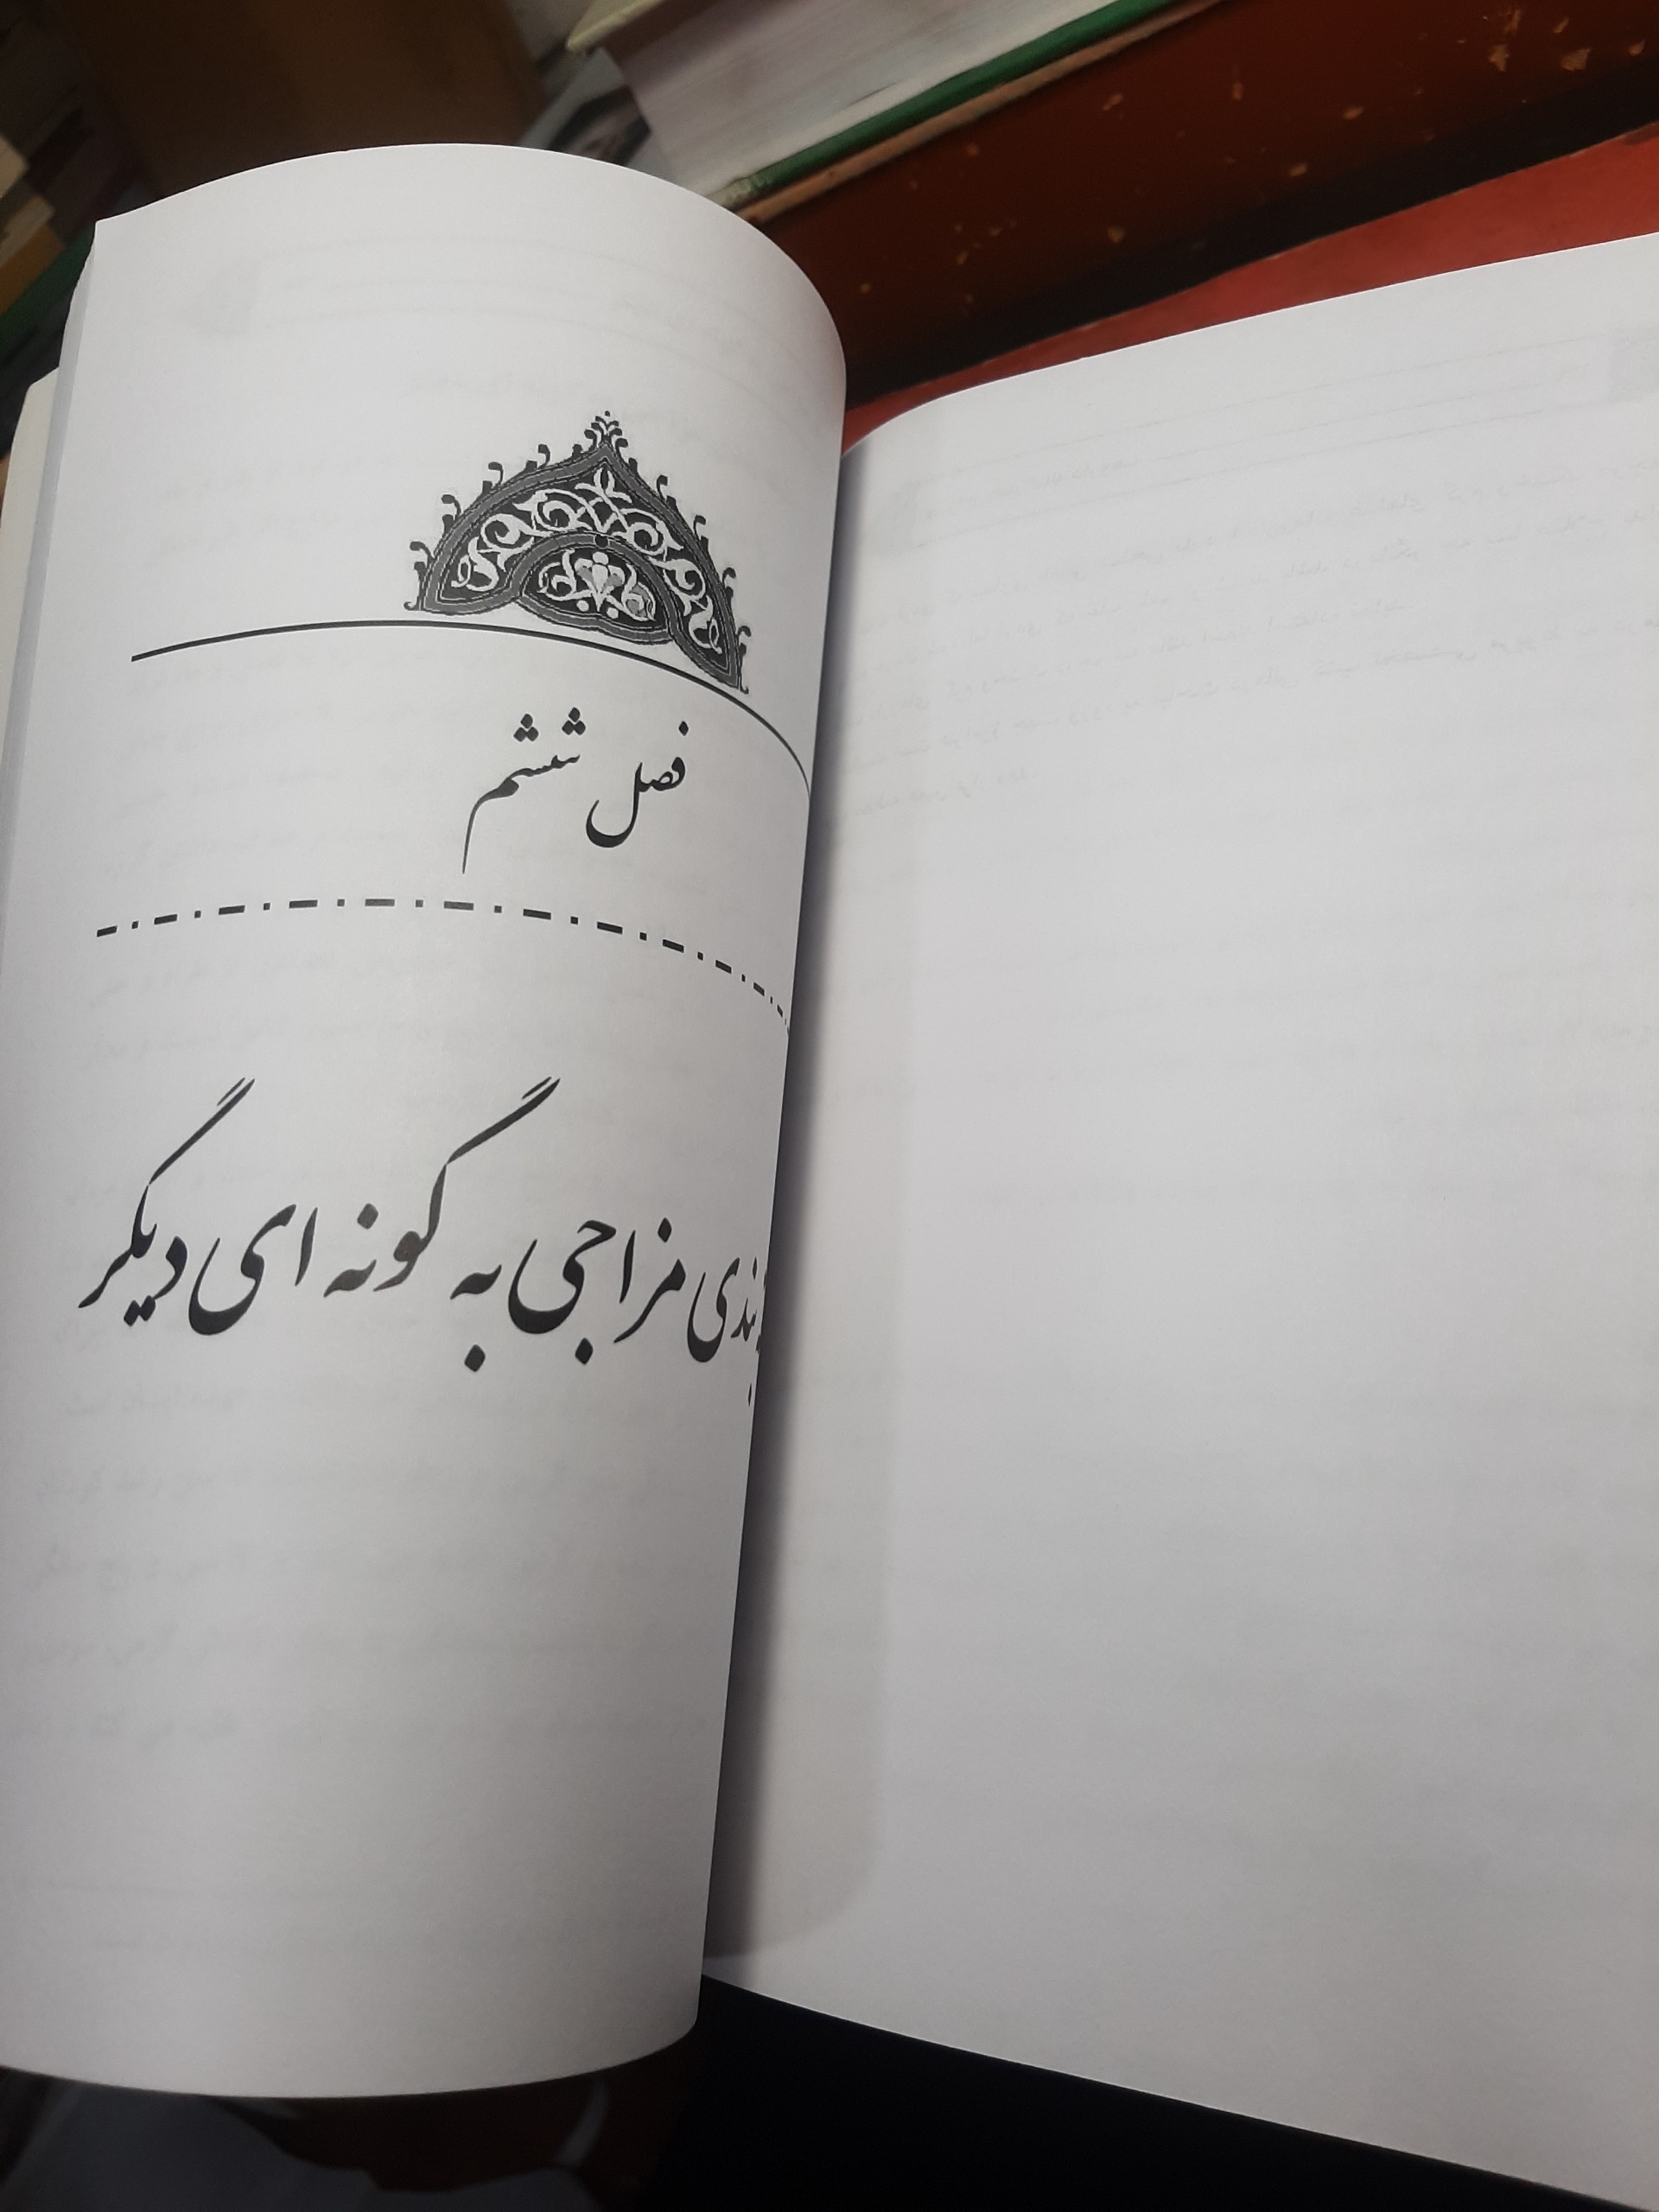 فصل ششم
بندی مزاجی به گونه ای دیگر